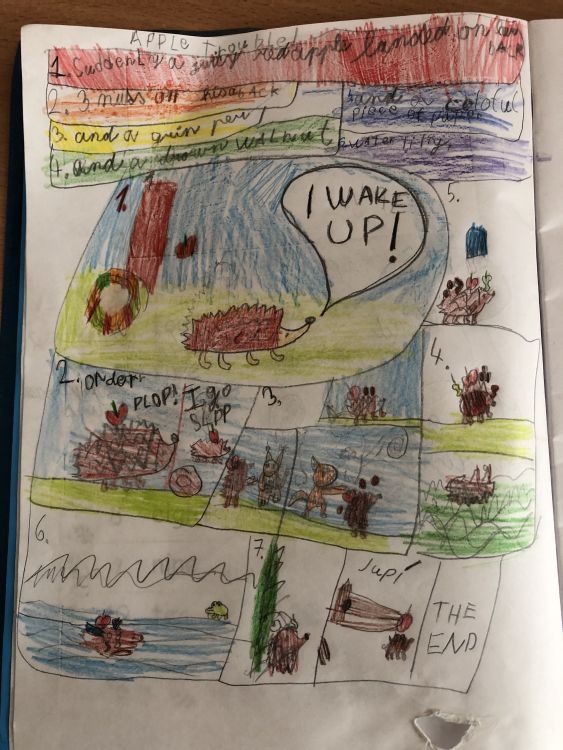 APPLE trouble!
1. Suddenly a juicy red apple landed on his
bAck
2. 3 nuts on his bAck
3. and a grein pear
4. and a brown wallnut
5. and a colofu
piece of paper
butterfly.
1.
I WAKE
UP!
5.
2.
PLOP!
I go
SLPP
3.
4.
6.
7.
Jupi!
THE
END